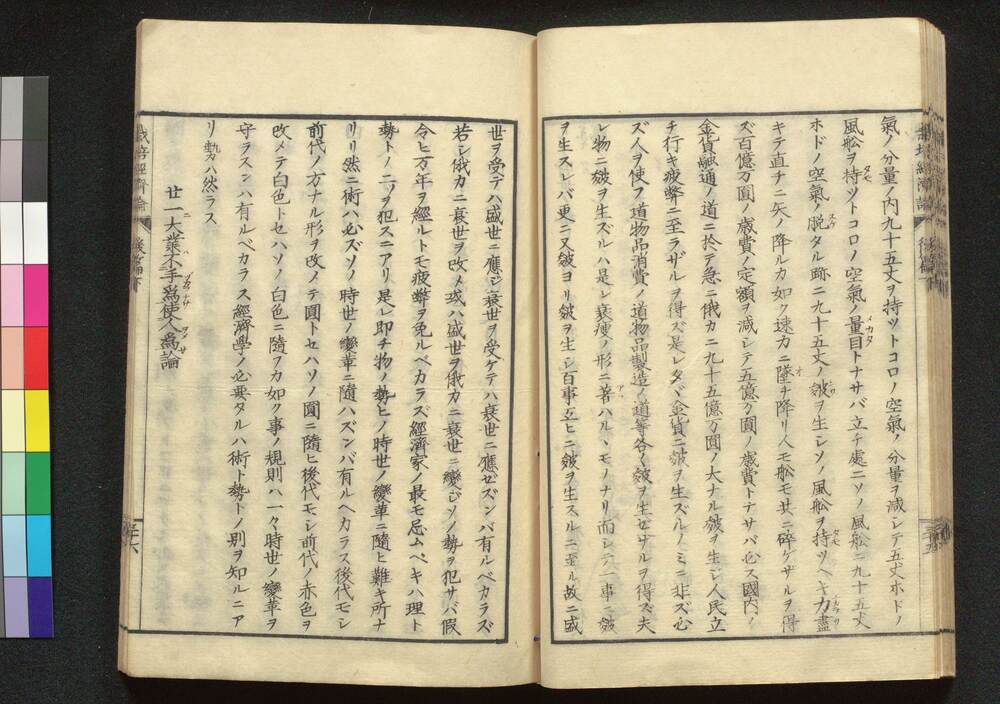 氣ノ分量ノ内九十五丈ヲ持ツトコロノ空氣ノ分量ヲ減シテ五丈ホドノ
風舩ヲ持ツトコロノ空氣ノ量目トナサバ立チ處ニソノ風舩ニ九十五丈
ホドノ空氣ノ脱タル跡ニ九十五丈ノ皺ヲ生シソノ風舩ヲ持ツヘキ力盡
キテ直チニ矢ノ降ルカ如ク速カニ墜チ降リ人モ舩モ共ニ碎ケザルヲ得
ズ百億万圓ノ歳費ノ定額ヲ減シテ五億万圓ノ歳費トナサバ必ス國内ノ
金貨融通ノ道ニ於テ急ニ俄カニ九十五億万圓ノ大ナル皺ヲ生シ人民立
チ行キ疲弊ニ至ラザルヲ得ズ是レタヾ金貨ニ皺ヲ生ズルノミニ非ズ必
ズ人ヲ使フノ道物品消費ノ道物品製造ノ道等各ノ皺ヲ生ゼザルヲ得ズ夫
レ物ニ皺ヲ生ズルハ是レ衰痩ノ形ニ著ハルヽモノナリ而シテ一事ニ皺
ヲ生スレバ更ニ又皺ヨリ皺ヲ生シ百事互ヒニ皺ヲ生スルニ至ル故ニ盛
世ヲ受テハ盛世ニ應シ衰世ヲ受ケテハ衰世ニ應ゼズンバ有ルベカラズ
若シ俄カニ衰世ヲ改メ或ハ盛世ヲ俄カニ衰世ニ變ジソノ勢ヲ犯サバ假
令ヒ万年ヲ經ルトモ疲弊ヲ免ルベカラズ經濟家ノ最モ忌ムベキハ理ト
勢トノ二ツヲ犯スニアリ是レ即チ物ノ勢ヒノ時世ノ變革ニ隨ヒ難キ所ナ
リ然ニ術ハ必ズソノ時世ノ變革ニ隨ハズンバ有ルヘカラス後代モシ
前代ノ方ナル形ヲ改メテ圓トセハソノ圓ニ隨ヒ後代モシ前代ノ赤色ヲ
改メテ白色トセハソノ白色ニ隨フカ如ク事ノ規則ハ一々時世ノ變革ヲ
守ラスンハ有ルベカラス經濟學ノ必要タルハ術ト勢トノ別ヲ知ルニア
リ勢ハ然ラス
廿一大業不手爲使人爲論
栽培經濟論
後篇下